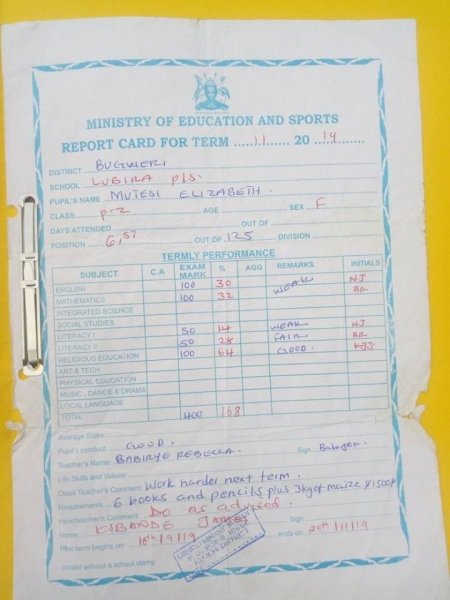 MINISTRY OF EDUCATION AND SPORTS
REPORT CARD FOR TERM 11 20 19
DISTRICT BUGWERI
SCHOOL LUBIRA p/s.
PUPIL'S NAME MUTESI ELIZABETH.
CLASS p.2 AGE SEX F
DAYS ATTENDED OUT OF
POSITION 61st OUT OF 125 DIVISION
TERMLY PERFORMANCE
SUBJECT C.A EXAM MARK % AGG REMARKS INITIALS
ENGLISH 100 30 WEAK N.J
MATHEMATICS 100 32 BR
INTEGRATED SCIENCE
SOCIAL STUDIES
LITERACY I 50 14 WEAK N.J
LITERACY II 50 28 FAIR BR
RELIGIOUS EDUCATION 100 64 GOOD.
ART & TECH
PHYSICAL EDUCATION
MUSIC, DANCE & DRAMA
LOCAL LANGUAGE
TOTAL 400 168
Average Score:
Pupil's conduct GOOD.
Teacher's Name: BABIRYE REBECCA Sign
Life Skills and Values:
Class Teacher's Comment Work harder next term.
Requirements 6 books and pencils plus 3kg of maize
Headteacher's Comment: Do as advised.
Name Sign
Next term begins on: 16th/9/19 ends on 29th/11/19
Invalid without a school stamp